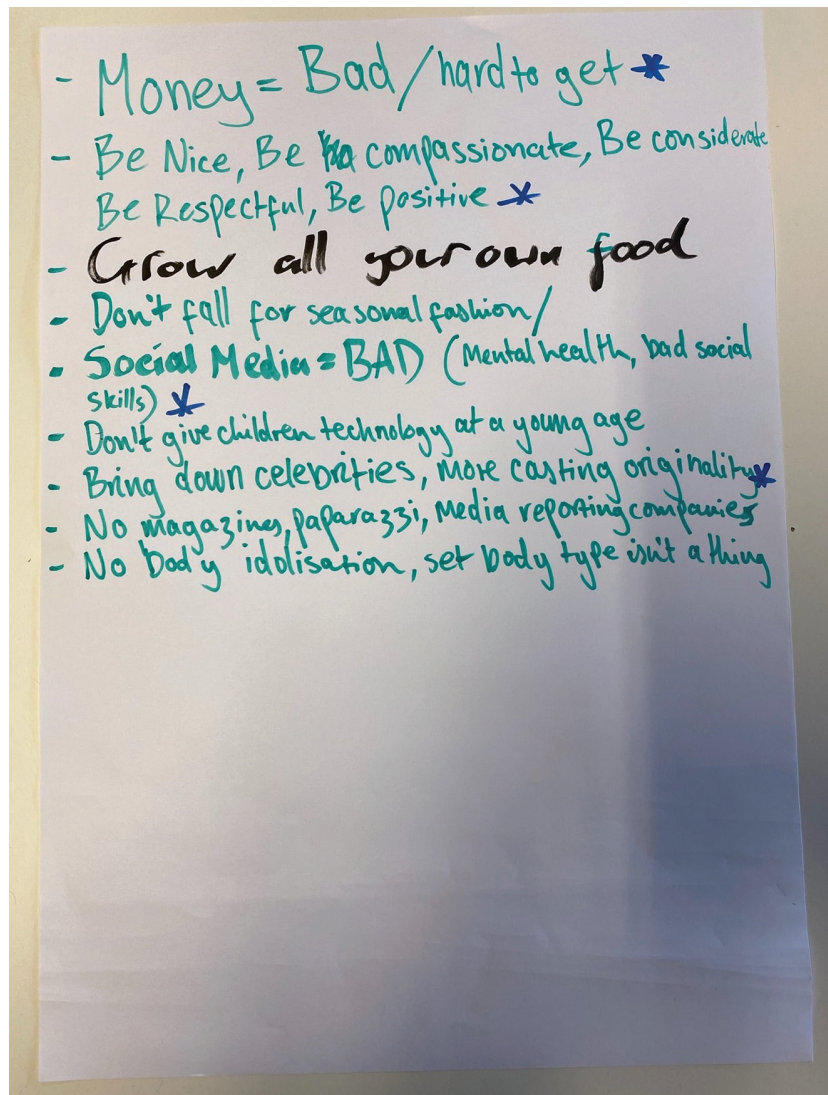 - Money = Bad/hard to get *
- Be Nice, Be compassionate, Be considerate
Be Respectful, Be positive *
- Grow all your own food
- Don't fall for seasonal fashion/
- Social Media = BAD (Mental health, bad social
skills) *
- Don't give children technology at a young age
- Bring down celebrities, More casting originality *
- No magazines, paparazzi, Media reporting companies
- No body idolisation, set body type isn't a thing